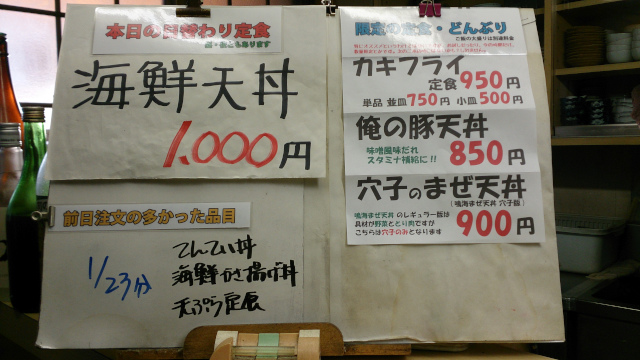 本日の日替わり定食
昼・夜ともあります
海鮮天丼
1,000円
前日注文の多かった品目
1/23分
海鮮かき揚げ丼
天ぷら定食
限定の定食・どんぶり
ご飯の大盛りは別途料金
カキフライ
定食 950円
単品 並皿750円 小皿500円
俺の豚天丼
味噌風味だれ
スタミナ補給に!!
850円
穴子のまぜ天丼
(鳴海まぜ天丼 穴子飯)
鳴海まぜ天丼 のレギュラー飯は
具材が野菜ととり肉ですが
こちらは穴子のみとなります
900円